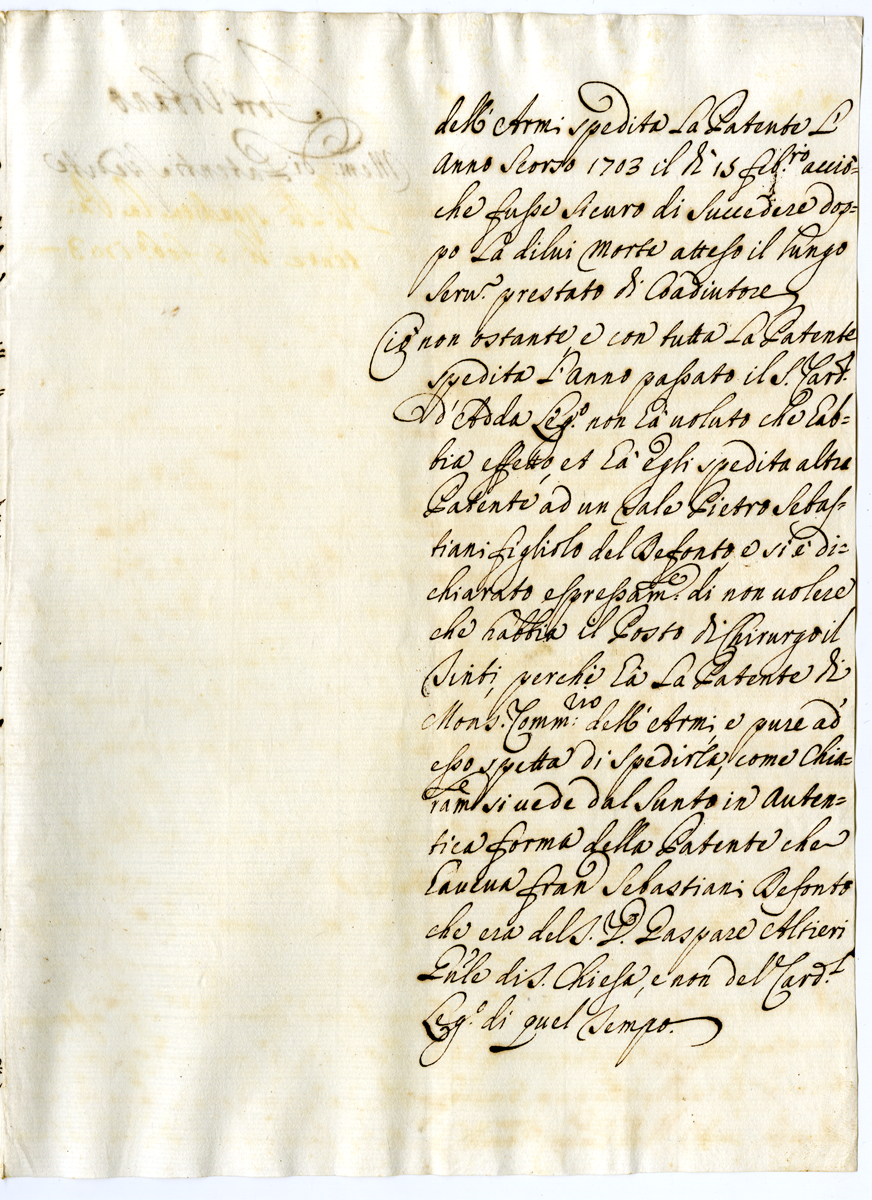 dell'Armi spedita La Patente L'
Anno scorso 1703 il dì 15 feb.ro acciò=
che fusse sicuro di succedere dop=
po La dilui morte atteso il lungo
Seru.o prestato di Coadiutore
Ciò non ostante, e con tutta La Patente
spedita L'anno passato il S. Card.l
d'Adda Leg.o non hà uoluto che hab=
bia effetto, et hà Egli spedita altra
Patente ad un tale Pietro Sebas=
tiani figliolo del Defonto, e si è di=
chiarato espressam.e di non uolere
che habbia il Posto di Chirurgo il
Tinti, perche hà La Patente di
Mons. Comm.rio dell'Armi, e pure ad
esso spetta di spedirla, come chia=
ram.e si uede dal sunto in Auten=
tica forma della Patente che
haueua fran.o Sebastiani Defonto
che era del S. P. Gaspare Altieri
Gn'le di S. Chiesa, e non del Card.l
Leg.o di quel tempo.